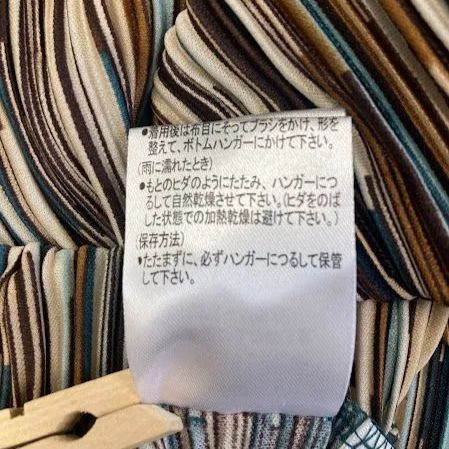 ●着用後は布目にそってブラシをかけ、形を
整えて、ボトムハンガーにかけて下さい。
(雨に濡れたとき)
●もとのヒダのようにたたみ、ハンガーにつ
るして自然乾燥させて下さい。(ヒダをのば
した状態での加熱乾燥は避けて下さい。)
(保存方法)
●たたまずに、必ずハンガーにつるして保管
して下さい。